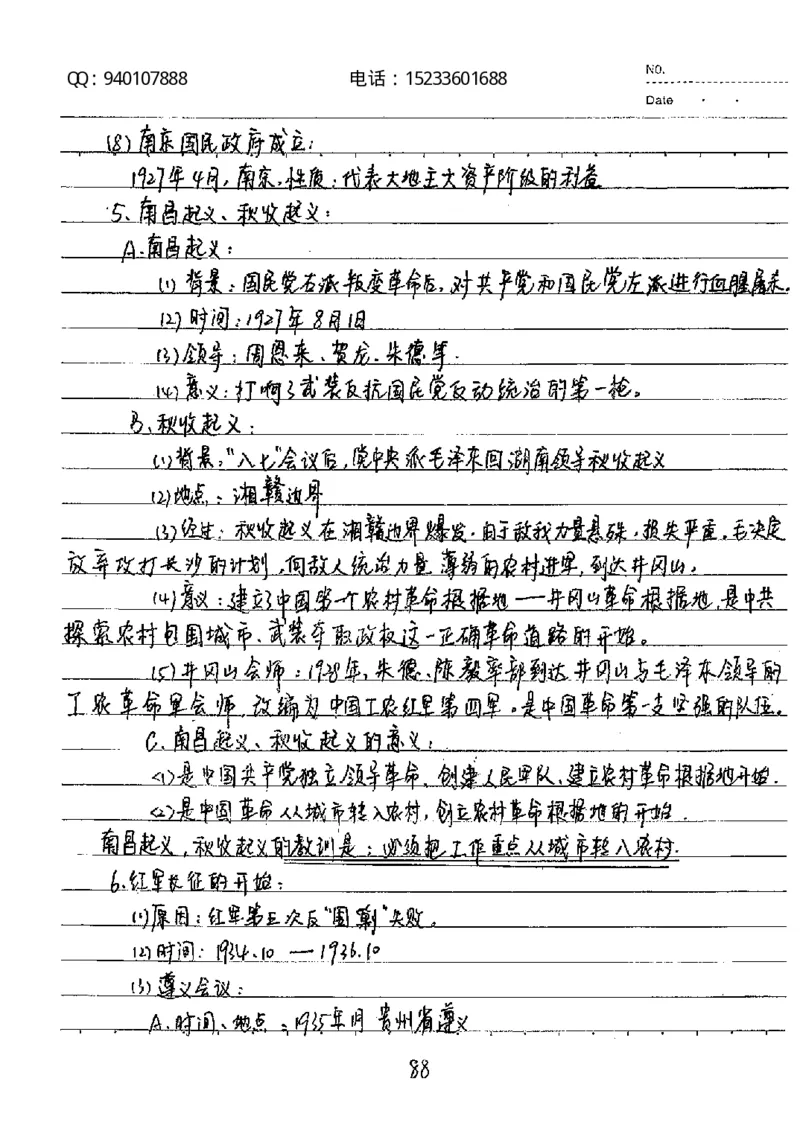 QQ：940107888 电话：15233601688 NO.
Date
(8)南京国民政府成立：
1927年4月，南京，性质：代表大地主大资产阶级的利益
5、南昌起义、秋收起义：
A.南昌起义：
(1)背景：国民党右派叛变革命后，对共产党和国民党左派进行血腥屠杀。
(2)时间：1927年8月1日
(3)领导：周恩来、贺龙、朱德等.
(4)意义：打响了武装反抗国民党反动统治的第一枪。
B、秋收起义：
(1)背景："八七"会议后，党中央派毛泽东回湖南领导秋收起义
(2)地点：湘赣边界
(3)经过：秋收起义在湘赣边界爆发，由于敌我力量悬殊，损失严重，毛决定
放弃攻打长沙的计划，向敌人统治力量薄弱的农村进军，到达井冈山。
(4)意义：建立了中国第一个农村革命根据地——井冈山革命根据地，是中共
探索农村包围城市、武装夺取政权这一正确革命道路的开始。
(5)井冈山会师：1928年，朱德、陈毅率部到达井冈山与毛泽东领导的
工农革命军会师，改编为中国工农红军第四军。是中国革命第一支坚强的队伍。
C.南昌起义、秋收起义的意义：
<1>是中国共产党独立领导革命、创建人民军队、建立农村革命根据地开始.
<2>是中国革命从城市转入农村，创立农村革命根据地的开始.
南昌起义，秋收起义的教训是：必须把工作重点从城市转入农村.
6.红军长征的开始：
(1)原因：红军第五次反"围剿"失败。
(2)时间：1934.10—1936.10
(3)遵义会议：
A.时间、地点：1935年1月 贵州省遵义
88